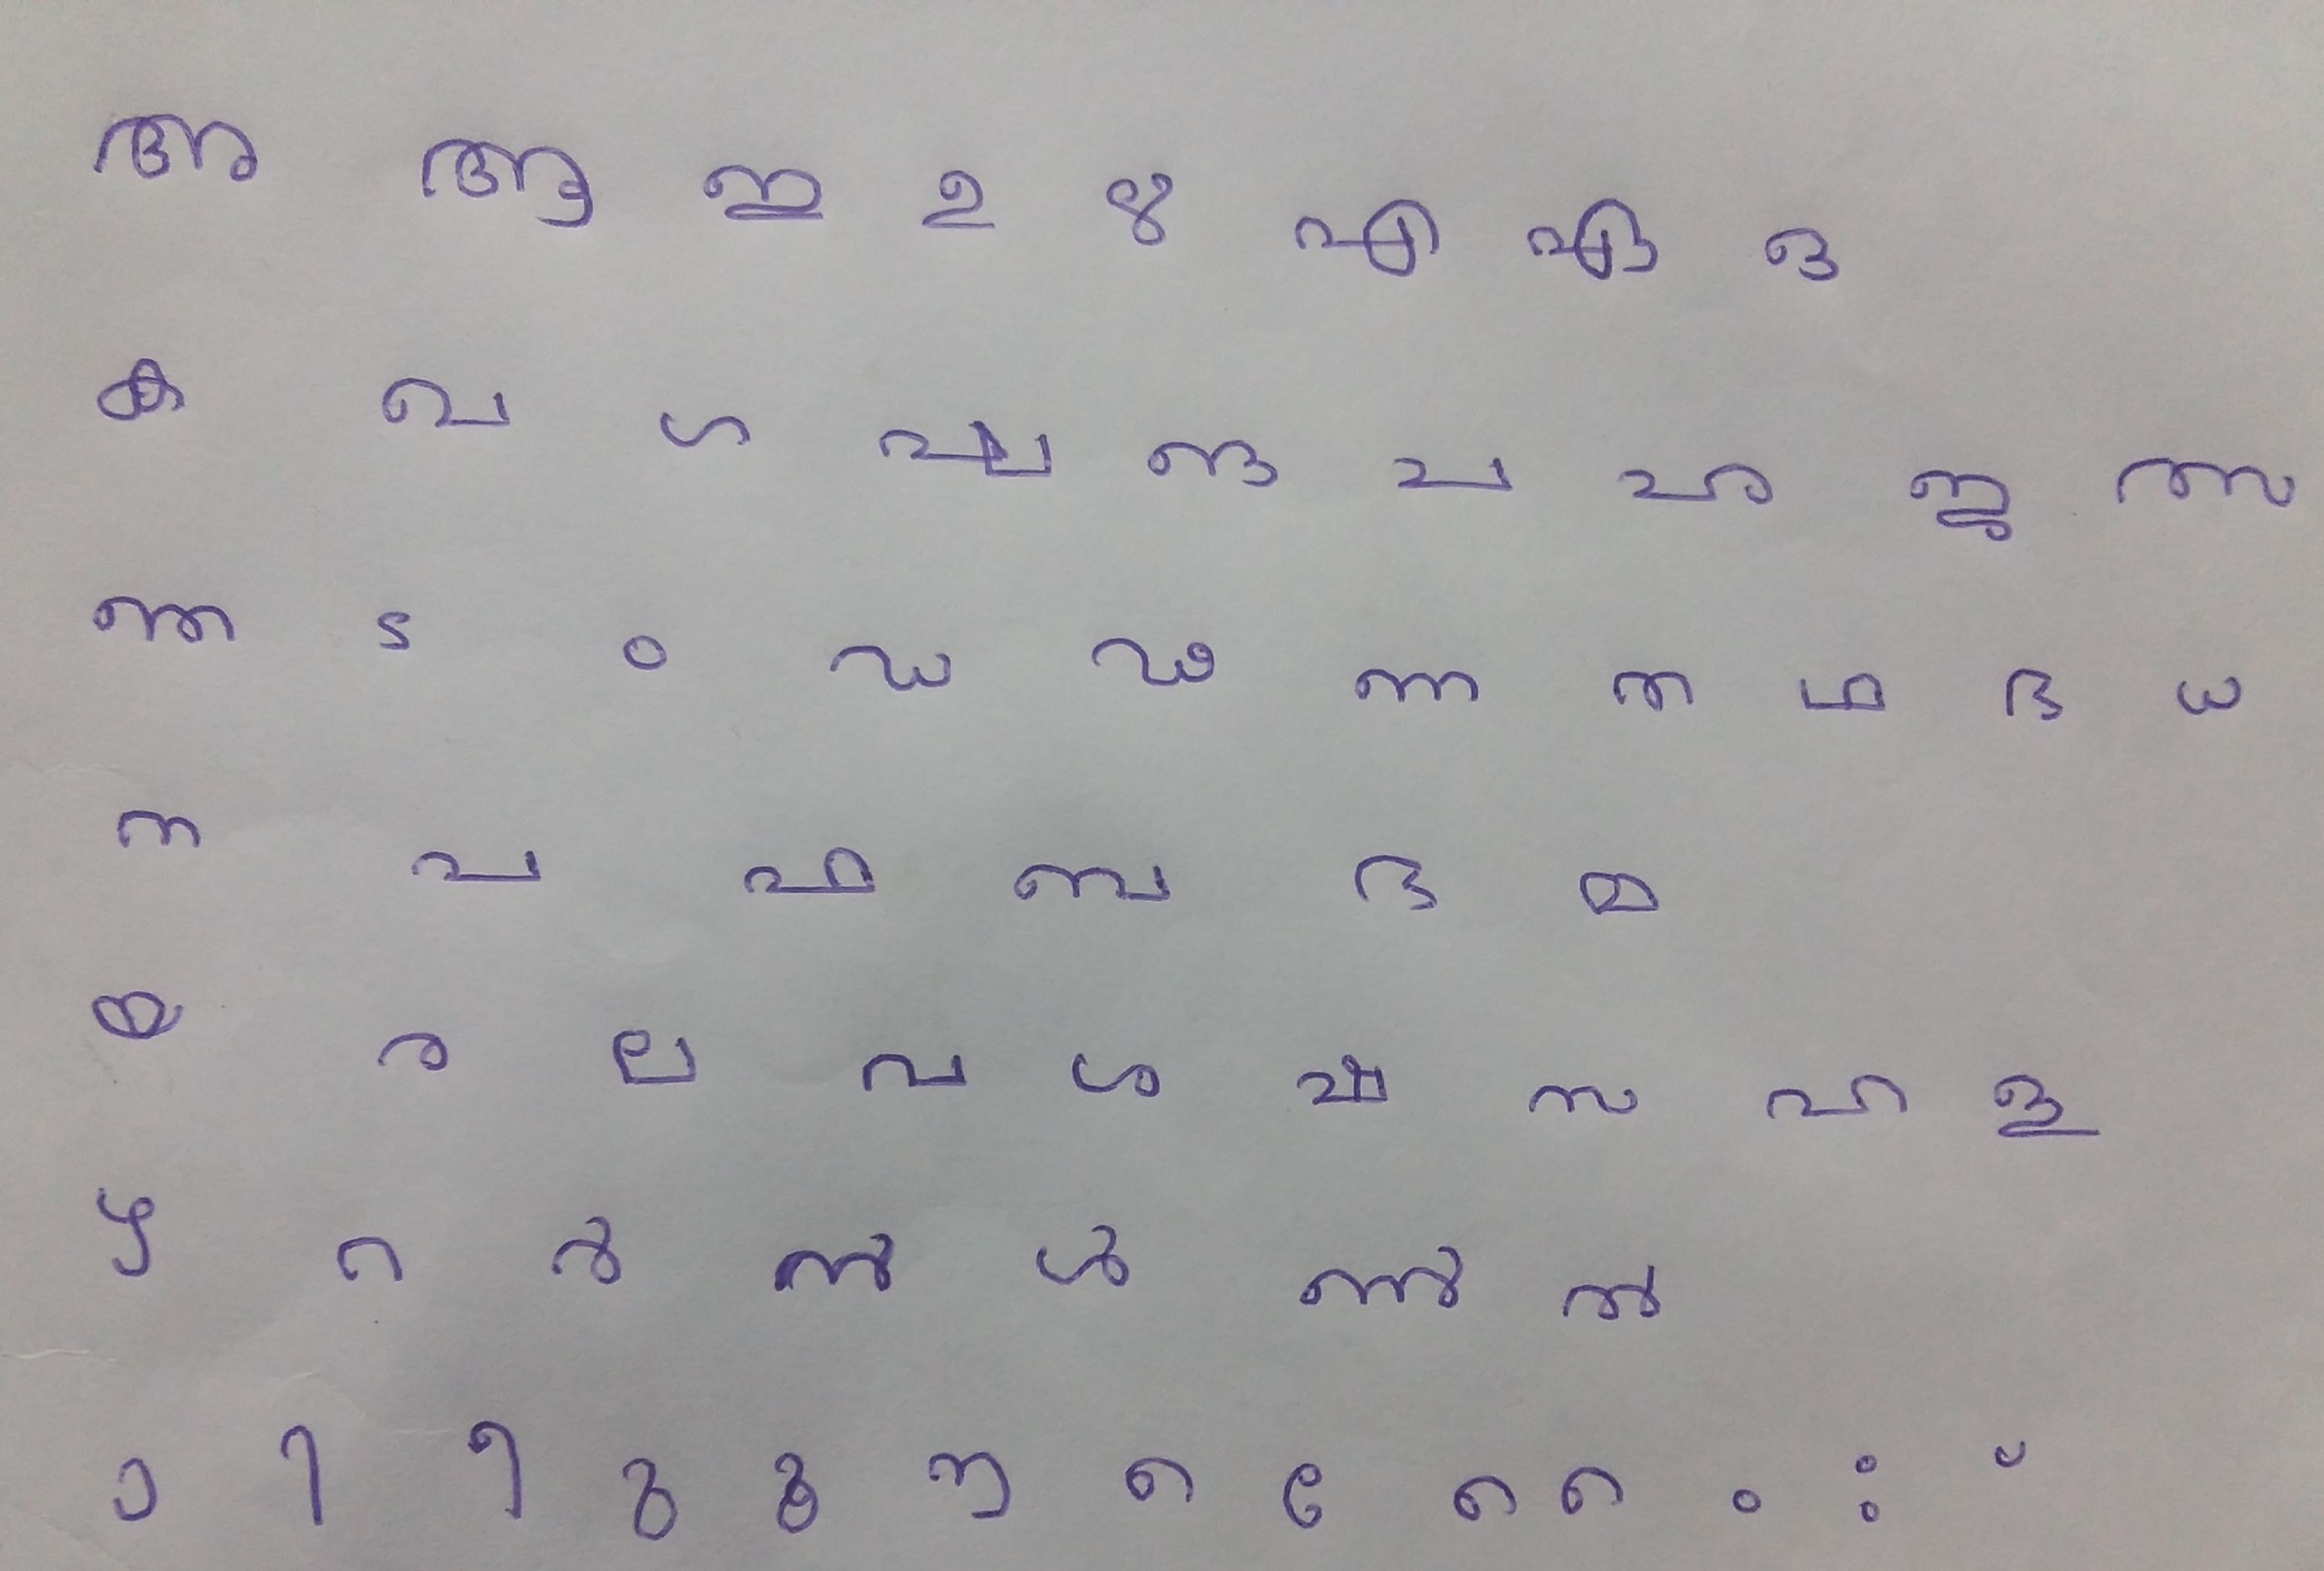 അ ആ ഇ ഉ ഋ എ ഏ ഒ
ക ഖ ഗ ഘ ങ ച ഛ ജ ഝ
ഞ ട ഠ ഡ ഢ ണ ത ഥ ദ ധ
ന പ ഫ ബ ഭ മ
യ ര ല വ ശ ഷ സ ഹ ള
ഴ റ ർ ൻ ൾ ൺ ൽ
ാ ി ീ ു ൂ ൃ െ േ ൈ ം ഃ ്